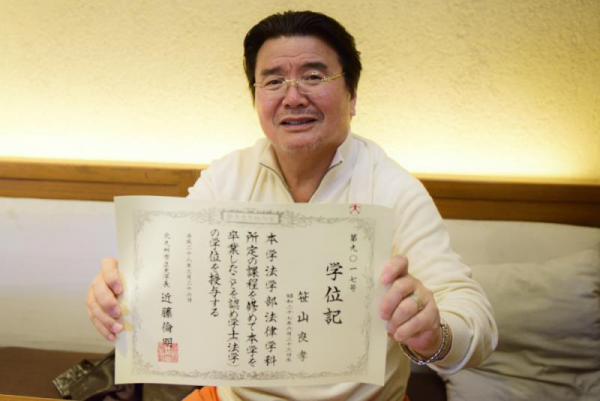 第九〇一七号
学位記
笹山良孝
昭和二十七年六月二十六日生
本学法学部法律学科
所定の課程を修めて本学を
卒業したことを認め学士(法学)
の学位を授与する
平成二十八年三月二十四日
北九州市立大学長 近藤倫明